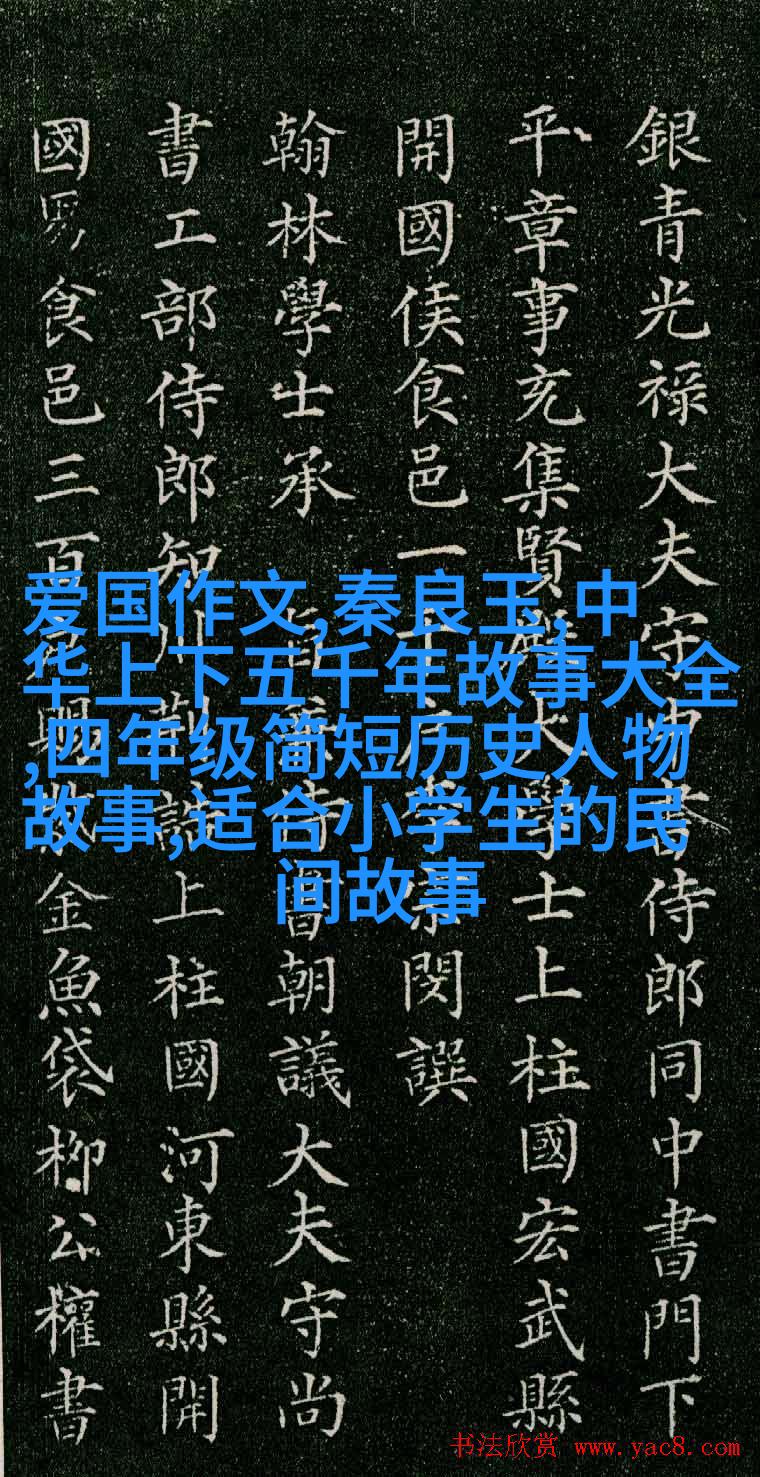 銀青光禄大夫守中書侍郎同中書門下
平章事充集賢殿大學士上柱國宏武縣
開國侯食邑一千户宗閔撰
翰林學士承旨兼侍書朝議大夫守尚
書工部侍郎知制誥上柱國河東縣開
國男食邑三百户賜紫金魚袋柳公權書
爱国作文,秦良玉,中
华上下五千年故事大全
,四年级简短历史人物
故事,适合小学生的民
间故事
书法欣赏 www.yac8.com